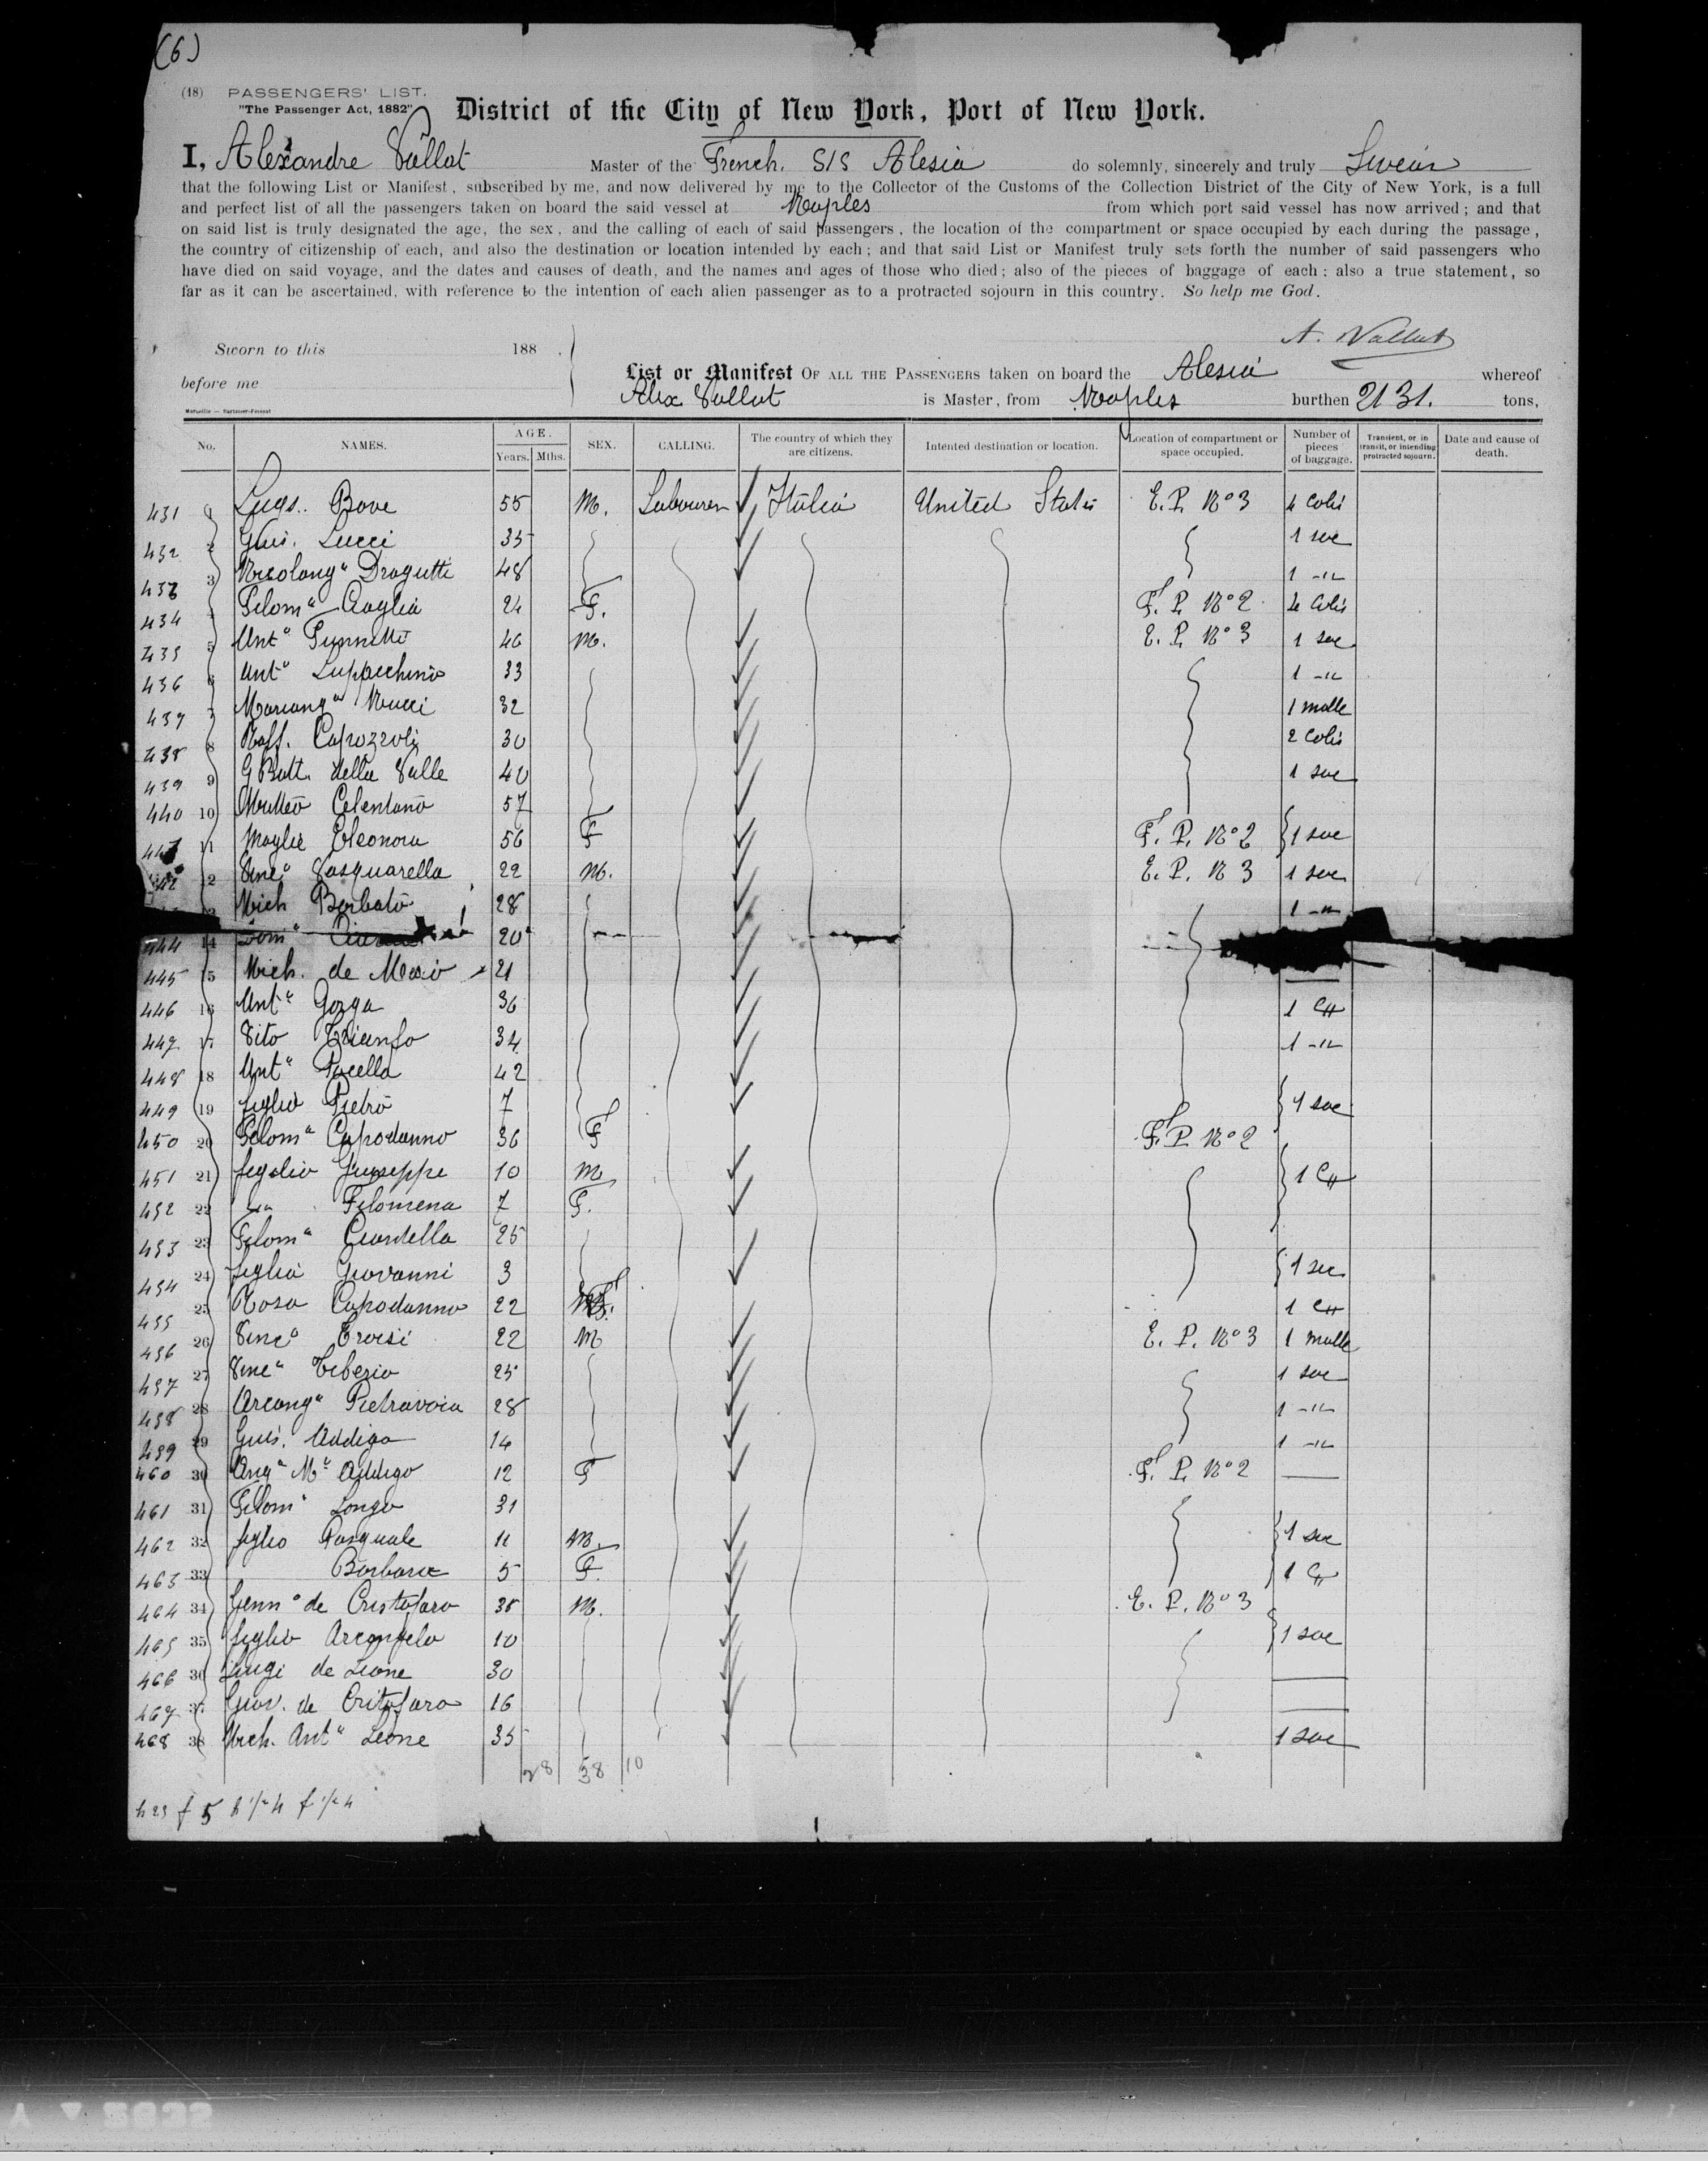 (6)
(18) PASSENGERS' LIST.
"The Passenger Act, 1882"
District of the City of New York, Port of New York.
I, Alexandre Vallat Master of the French. S/S Alesia do solemnly, sincerely and truly Swear
that the following List or Manifest, subscribed by me, and now delivered by me to the Collector of the Customs of the Collection District of the City of New York, is a full
and perfect list of all the passengers taken on board the said vessel at Naples from which port said vessel has now arrived; and that
on said list is truly designated the age, the sex, and the calling of each of said passengers, the location of the compartment or space occupied by each during the passage,
the country of citizenship of each, and also the destination or location intended by each; and that said List or Manifest truly sets forth the number of said passengers who
have died on said voyage, and the dates and causes of death, and the names and ages of those who died; also of the pieces of baggage of each: also a true statement, so
far as it can be ascertained, with reference to the intention of each alien passenger as to a protracted sojourn in this country. So help me God.
A. Vallat
Sworn to this 188 .
before me
List or Manifest OF ALL THE PASSENGERS taken on board the Alesia whereof
Alex Vallat is Master, from Naples burthen 2131. tons,
No. NAMES. AGE. Years. Mths. SEX. CALLING. The country of which they are citizens. Intented destination or location. Location of compartment or space occupied. Number of pieces of baggage. Transient, or in transit, or intending protracted sojourn. Date and cause of death.
431 1 Bove 55 M. Labourer Italia United States E. P. No 3 4 Colis
432 2 Gius. Lucci 35 1 sac
3 Nicolang° Dragutti 48 1 -"-
434 Filoma 24 F. F. P. No 2 4 Colis
435 5 Ant° 46 M. E. P. No 3 1 sac
436 6 Ant° Luppacchino 33 1 -"-
437 7 Mariang° Nucci 32 1 malle
438 8 Raff. Capozzoli 30 2 Colis
439 9 G Batt. della Valle 40 1 sac
440 10 Matteo Celentano 57
11 Moglie Eleonora 56 F F. P. No 2 1 sac
12 Vinc° Pasquarella 22 M. E. P. N 3 1 sac
Mich Barbato 28 1 -"-
444 14 20
445 15 Mich. de 21
446 16 Ant° Gorga 36 1 Ctt
447 17 Vito 34 1 -"-
448 18 Ant° Pacella 42
449 19 figlio Pietro 7 1 sac
450 20 Filoma Capodanno 36 F F. P. No 2
451 21 figlio Giuseppe 10 M 1 Ctt
452 22 -"- Filomena 7 F.
453 23 Filoma Ciardella 25
454 24 figlia Giovanni 3 1 sac
455 25 Rosa Capodanno 22 F. 1 Ctt
456 26 Vinc° Troisi 22 M E. P. No 3 1 malle
457 27 Vinc° Tiberio 25 1 sac
458 28 Arcang° Pietravoia 28 1 -"-
459 29 Gius. Addigo 14 1 -"-
460 30 Anga Ma Addigo 12 F F. P. No 2
461 31 Filoma Longo 31
462 32 figlio Pasquale 11 M. 1 sac
463 33 Barbara 5 F. 1 Ctt
464 34 Genn° de Cristofaro 38 M. E. P. No 3
465 35 figlio Arcangelo 10 1 sac
466 36 Luigi de Leone 30
467 37 Giov. de Critofaro 16
468 38 Mich. Ant° Leone 35 1 sac
28 38 10